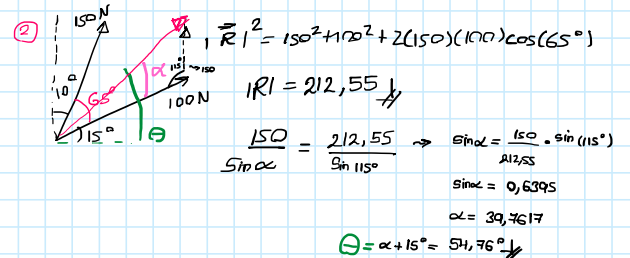 2
150N
10°
65°
15°
α
115°
→150
100N
θ
|R⃗|² = 150² + 100² + 2(150)(100)cos(65°)
|R| = 212,55
150/Sinα = 212,55/Sin 115° → sinα = 150/212,55 · sin(115°)
sinα = 0,6395
α = 39,7617
θ = α + 15° = 54,76°